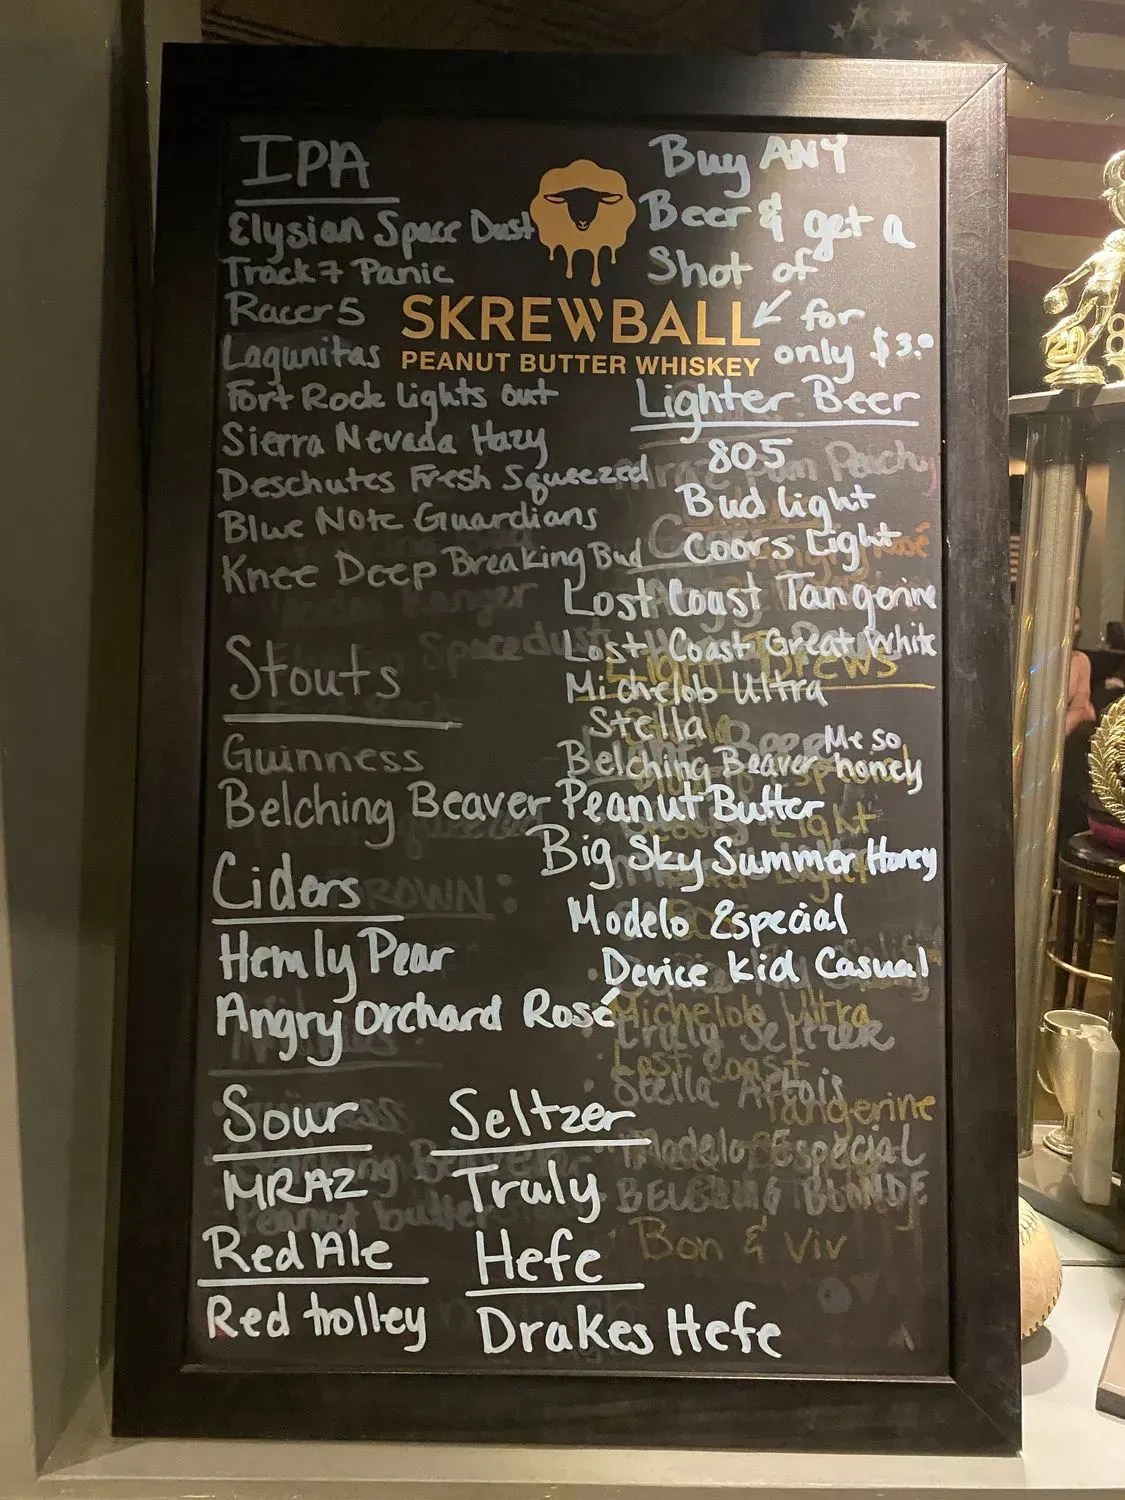 IPA
Elysian Space Dust
Track 7 Panic
Racer 5
Lagunitas
Fort Rock Lights out
Sierra Nevada Hazy
Deschutes Fresh Squeezed
Blue Note Guardians
Knee Deep Breaking Bud
Stouts
Guinness
Belching Beaver Peanut Butter
Ciders
Hemly Pear
Angry Orchard Rosé
Sour
MRAZ
Red Ale
Red trolley
Seltzer
Truly
Hefe
Drakes Hefe
SKREWBALL
PEANUT BUTTER WHISKEY
Buy ANY
Beer & get a
Shot of
for
only $3.⁰
Lighter Beer
805
Bud light
Coors Light
Lost Coast Tangerine
Lost Coast Great White
Michelob Ultra
Stella
Belching Beaver Me so honey
Big Sky Summer Honey
Modelo Especial
Device Kid Casual
Michelob Ultra
Truly Seltzer
Lost Coast
Stella Artois
Tangerine
Modelo Especial
Bon & Viv